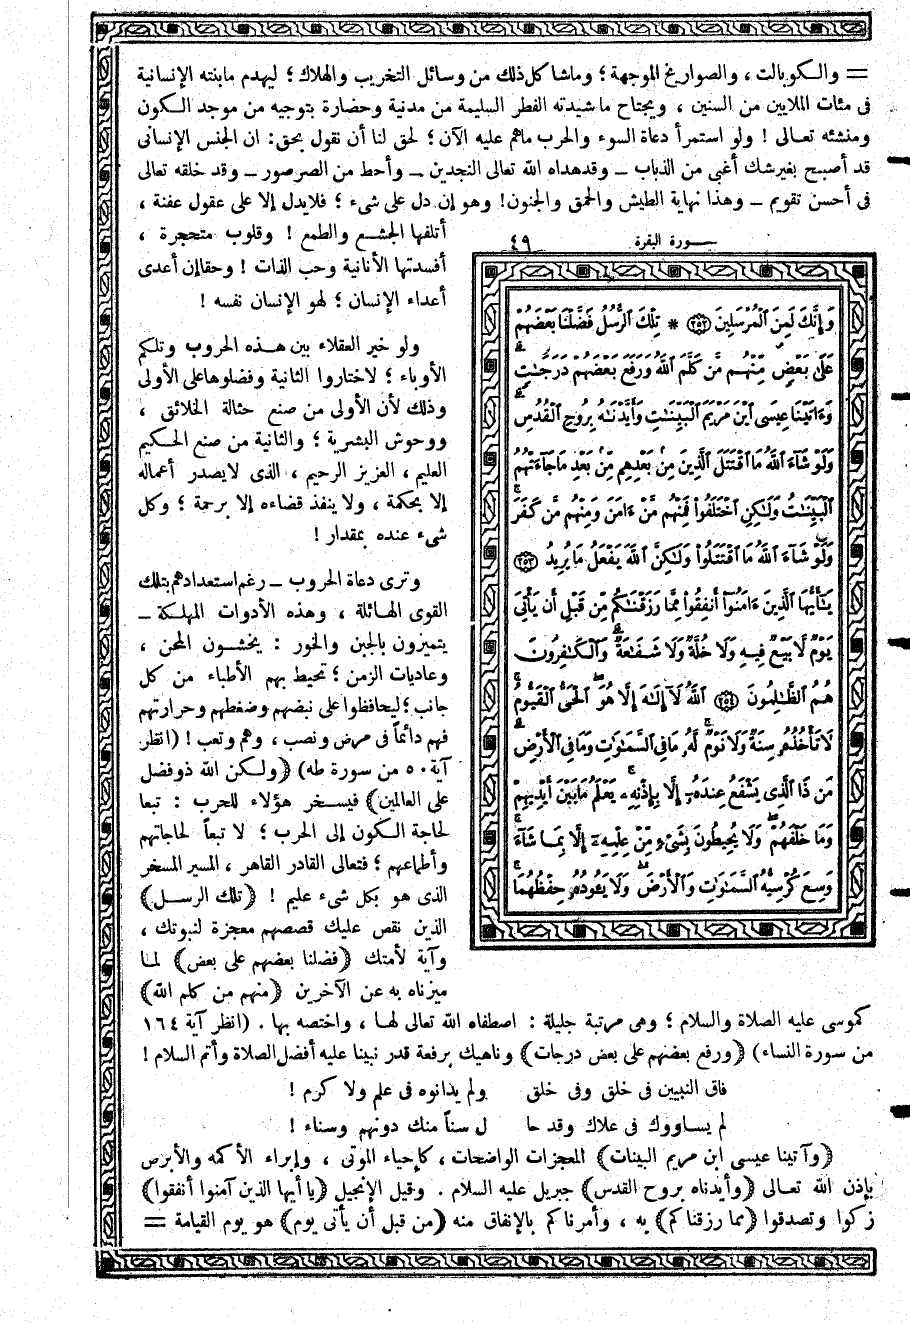 = والكوبالت ، والصواريخ الموجهة ؛ وماشا كل ذلك من وسائل التخريب والهلاك ؛ ليهدم مابنته الإنسانية
فى مئات الملايين من السنين ، ويجتاح ما شيدته الفطر السليمة من مدنية وحضارة بتوجيه من موجد الكون
ومنشئه تعالى ! ولو استمرأ دعاة السوء والحرب ماهم عليه الآن ؛ لحق لنا أن نقول بحق : ان الجنس الإنسانى
قد أصبح بغير شك أغبى من الذباب ــ وقدهداه الله تعالى النجدين ــ وأحط من الصرصور ــ وقد خلقه تعالى
فى أحسن تقويم ــ وهذا نهاية الطيش والحمق والجنون! وهو إن دل على شىء ؛ فلايدل إلا على عقول عفنة ،
أتلفها الجشع والطمع ! وقلوب متحجرة ،
أفسدتها الأنانية وحب الذات ! وحقاإن أعدى
أعداء الإنسان ؛ لهو الإنسان نفسه !
ولو خير العقلاء بين هذه الحروب وتلكم
الأوباء ؛ لاختاروا الثانية وفضلوهاعلى الأولى
وذلك لأن الأولى من صنع حثالة الخلائق ،
ووحوش البشرية ؛ والثانية من صنع الحكيم
العليم ، العزيز الرحيم ، الذى لايصدر أعماله
إلا بحكمة ، ولا ينفذ قضاءه إلا برحمة ؛ وكل
شىء عنده بمقدار !
وترى دعاة الحروب ــ رغم استعدادهم بتلك
القوى الهائلة ، وهذه الأدوات المهلكة ــ
يتميزون بالجبن والخور : يخشون المحن ،
وعاديات الزمن ؛ تحيط بهم الأطباء من كل
جانب ؛ ليحافظوا على نبضهم وضغطهم وحرارتهم
فهم دائماً فى مرض ونصب ، وهم وتعب ! (انظر
آية ٥٠ من سورة طه) (ولكن الله ذوفضل
على العالمين) فيسخر هؤلاء للحرب : تبعا
لحاجة الكون إلى الحرب ؛ لا تبعاً لحاجاتهم
وأطماعهم ؛ فتعالى القادر القاهر ، المسير المسخر
الذى هو بكل شىء عليم ! (تلك الرسل)
الذين نقص عليك قصصهم معجزة لنبوتك ،
وآية لأمتك (فضلنا بعضهم على بعض) لما
ميزناه به عن الآخرين (منهم من كلم الله)
سورة البقرة ٤٩
وَإِنَّكَ لَمِنَ الْمُرْسَلِينَ ٢٥٢ * تِلْكَ الرُّسُلُ فَضَّلْنَا بَعْضَهُمْ
عَلَىٰ بَعْضٍ مِّنْهُم مَّن كَلَّمَ اللَّهُ وَرَفَعَ بَعْضَهُمْ دَرَجَاتٍ
وَءَاتَيْنَا عِيسَى ابْنَ مَرْيَمَ الْبَيِّنَاتِ وَأَيَّدْنَاهُ بِرُوحِ الْقُدُسِ
وَلَوْ شَاءَ اللَّهُ مَا اقْتَتَلَ الَّذِينَ مِن بَعْدِهِم مِّن بَعْدِ مَا جَاءَتْهُمُ
الْبَيِّنَاتُ وَلَٰكِنِ اخْتَلَفُوا فَمِنْهُم مَّنْ ءَامَنَ وَمِنْهُم مَّن كَفَرَ
وَلَوْ شَاءَ اللَّهُ مَا اقْتَتَلُوا وَلَٰكِنَّ اللَّهَ يَفْعَلُ مَا يُرِيدُ ٢٥٣
يَٰأَيُّهَا الَّذِينَ ءَامَنُوا أَنفِقُوا مِمَّا رَزَقْنَاكُم مِّن قَبْلِ أَن يَأْتِيَ
يَوْمٌ لَّا بَيْعٌ فِيهِ وَلَا خُلَّةٌ وَلَا شَفَاعَةٌ وَالْكَافِرُونَ
هُمُ الظَّالِمُونَ ٢٥٤ اللَّهُ لَا إِلَٰهَ إِلَّا هُوَ الْحَيُّ الْقَيُّومُ
لَا تَأْخُذُهُ سِنَةٌ وَلَا نَوْمٌ لَّهُ مَا فِي السَّمَاوَاتِ وَمَا فِي الْأَرْضِ
مَن ذَا الَّذِي يَشْفَعُ عِندَهُ إِلَّا بِإِذْنِهِ يَعْلَمُ مَا بَيْنَ أَيْدِيهِمْ
وَمَا خَلْفَهُمْ وَلَا يُحِيطُونَ بِشَيْءٍ مِّنْ عِلْمِهِ إِلَّا بِمَا شَاءَ
وَسِعَ كُرْسِيُّهُ السَّمَاوَاتِ وَالْأَرْضَ وَلَا يَئُودُهُ حِفْظُهُمَا
كموسى عليه الصلاة والسلام ؛ وهى مرتبة جليلة : اصطفاه الله تعالى لها ، واختصه بها . (انظر آية ١٦٤
من سورة النساء) (ورفع بعضهم على بعض درجات) وناهيك برفعة قدر نبينا عليه أفضل الصلاة وأتم السلام !
فاق النبيين فى خلق وفى خلق ولم يدانوه فى علم ولا كرم !
لم يساووك فى علاك وقد حا ل سناً منك دونهم وسناء !
(وآتينا عيسى ابن مريم البينات) المعجزات الواضحات ، كإحياء الموتى ، وإبراء الأكمه والأبرص
بإذن الله تعالى (وأيدناه بروح القدس) جبريل عليه السلام . وقيل الإنجيل (يا أيها الذين آمنوا أنفقوا)
زكوا وتصدقوا (مما رزقناكم) به ، وأمرناكم بالإنفاق منه (من قبل أن يأتى يوم) هو يوم القيامة =